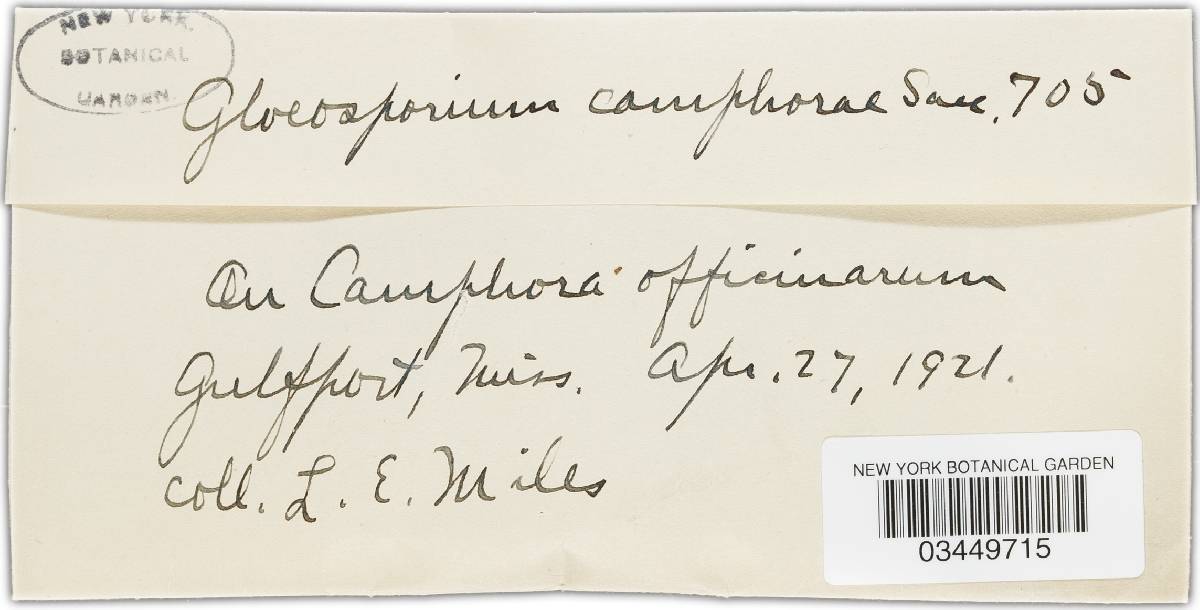 NEW YORK
BOTANICAL
GARDEN.
Gloeosporium camphorae Sacc. 705
On Camphora officinarum
Gulfport, Miss. Apr. 27, 1921.
coll. L. E. Miles
NEW YORK BOTANICAL GARDEN
03449715